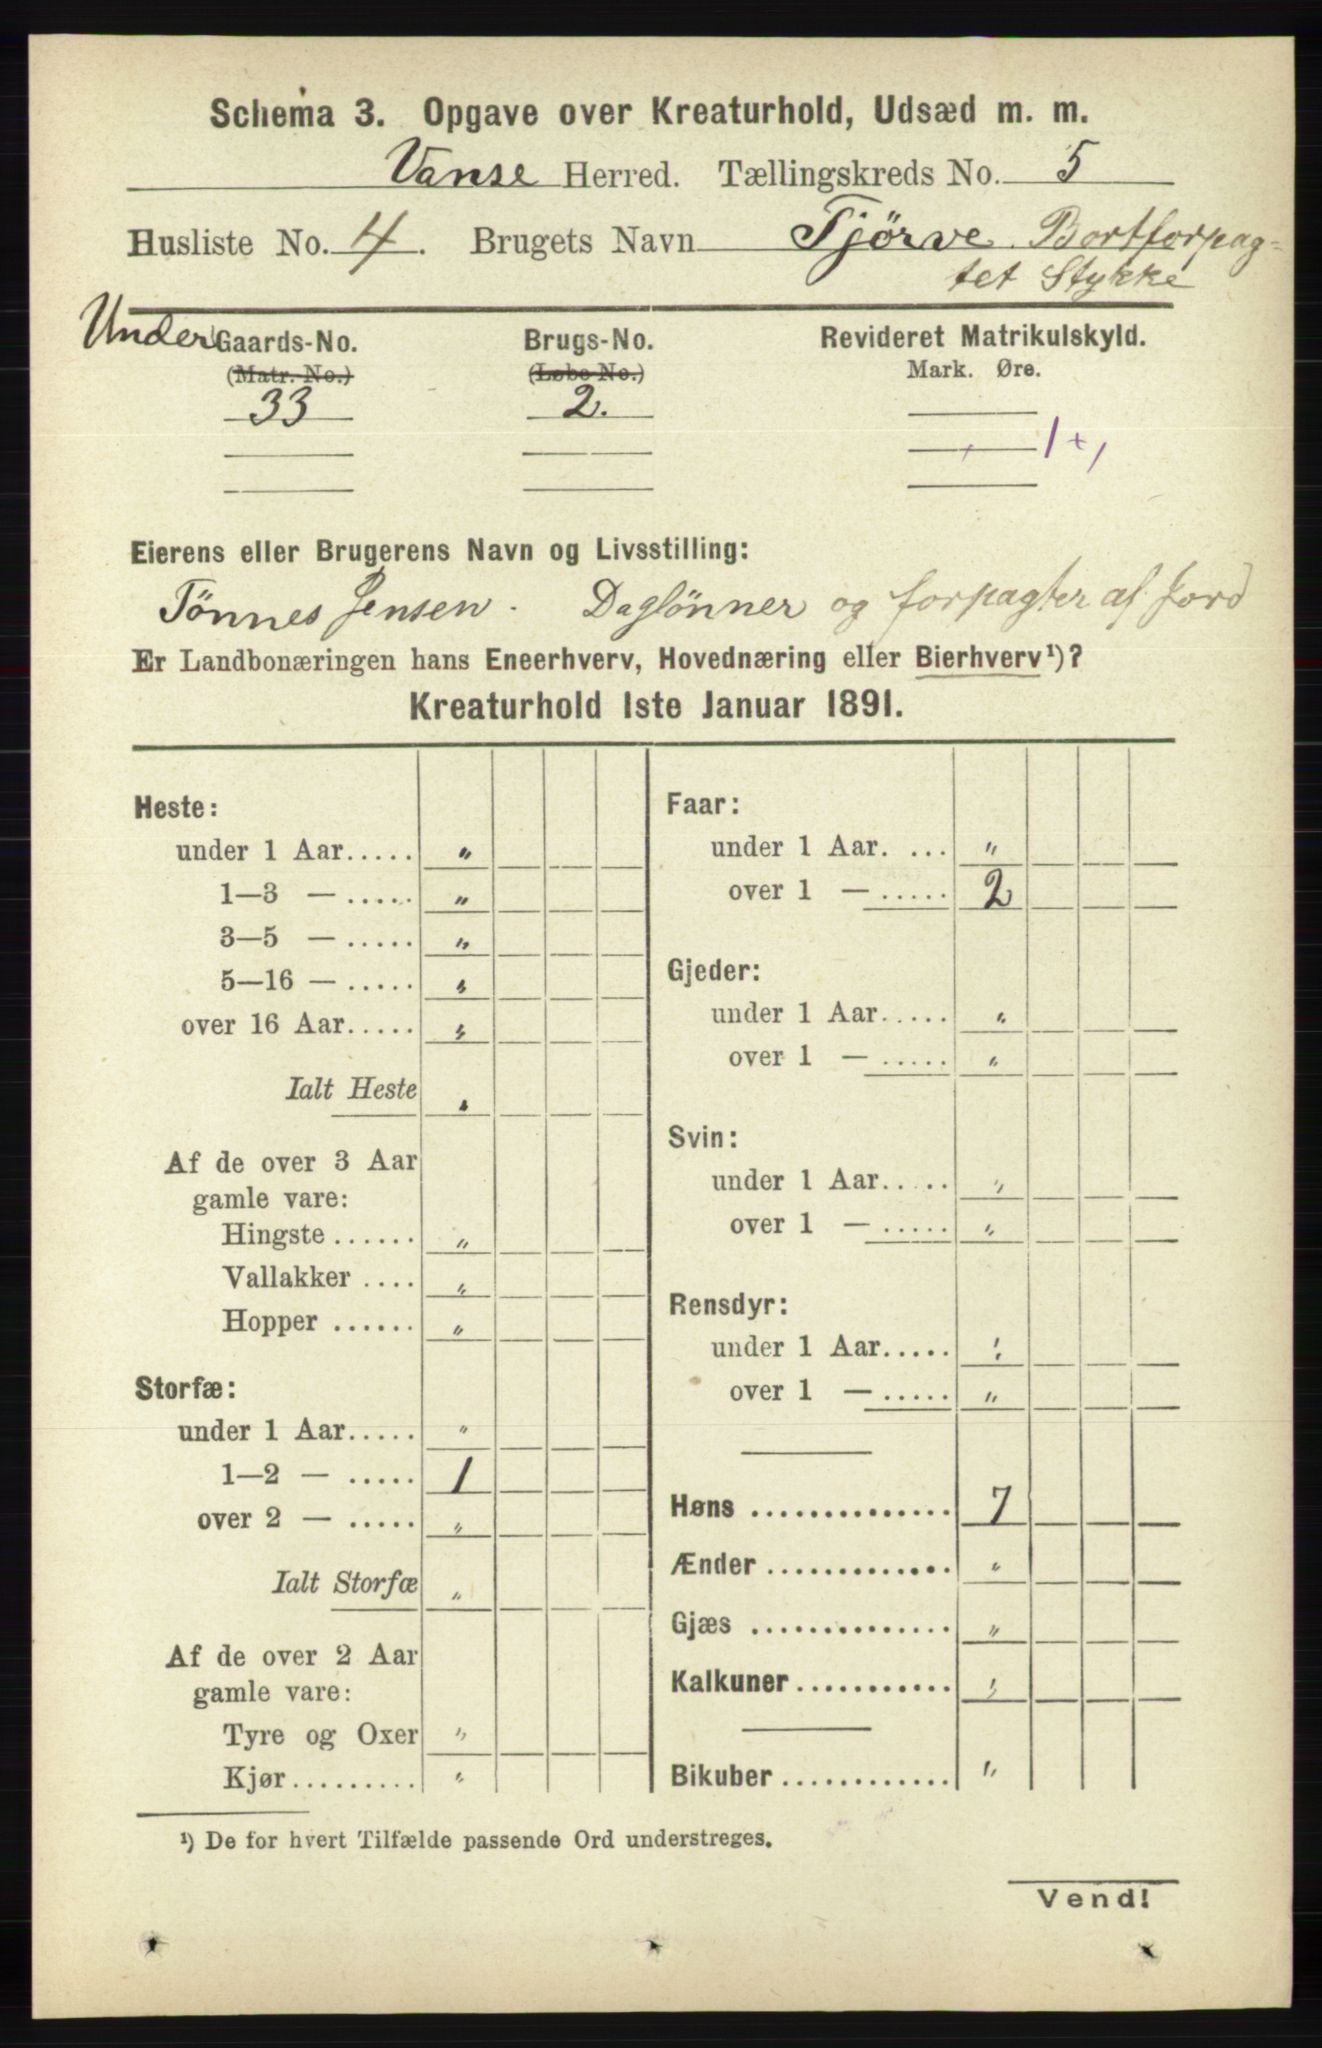 Schema 3. Opgave over Kreaturhold, Udsæd m. m.
Vanse Herred. Tællingskreds No. 5
Husliste No. 4. Brugets Navn Tjörve. Bortforpag-
tet Stykke
Under Gaards-No. Brugs-No. Revideret Matrikulskyld.
(Matr. No.) (Løbe No.) Mark. Øre.
33 2.
1 +
Eierens eller Brugerens Navn og Livsstilling:
Tönnes Jensen. Daglönner og forpagter af Jord
Er Landbonæringen hans Eneerhverv, Hovednæring eller Bierhverv¹)?
Kreaturhold 1ste Januar 1891.
Heste:
under 1 Aar..... "
1—3 — ..... "
3—5 — ..... "
5—16 — ..... "
over 16 Aar..... "
Ialt Heste "
Af de over 3 Aar
gamle vare:
Hingste ...... "
Vallakker .... "
Hopper ...... "
Storfæ:
under 1 Aar..... "
1—2 — ..... 1
over 2 — ..... "
Ialt Storfæ "
Af de over 2 Aar
gamle vare:
Tyre og Oxer "
Kjør......... "
Faar:
under 1 Aar. ... "
over 1 — ..... 2
Gjeder:
under 1 Aar..... "
over 1 — ..... "
Svin:
under 1 Aar..... "
over 1 — ..... "
Rensdyr:
under 1 Aar..... "
over 1 — ..... "
Høns .............. 7
Ænder ............. "
Gjæs .............. "
Kalkuner ........... "
Bikuber ............ "
¹) De for hvert Tilfælde passende Ord understreges.
Vend!